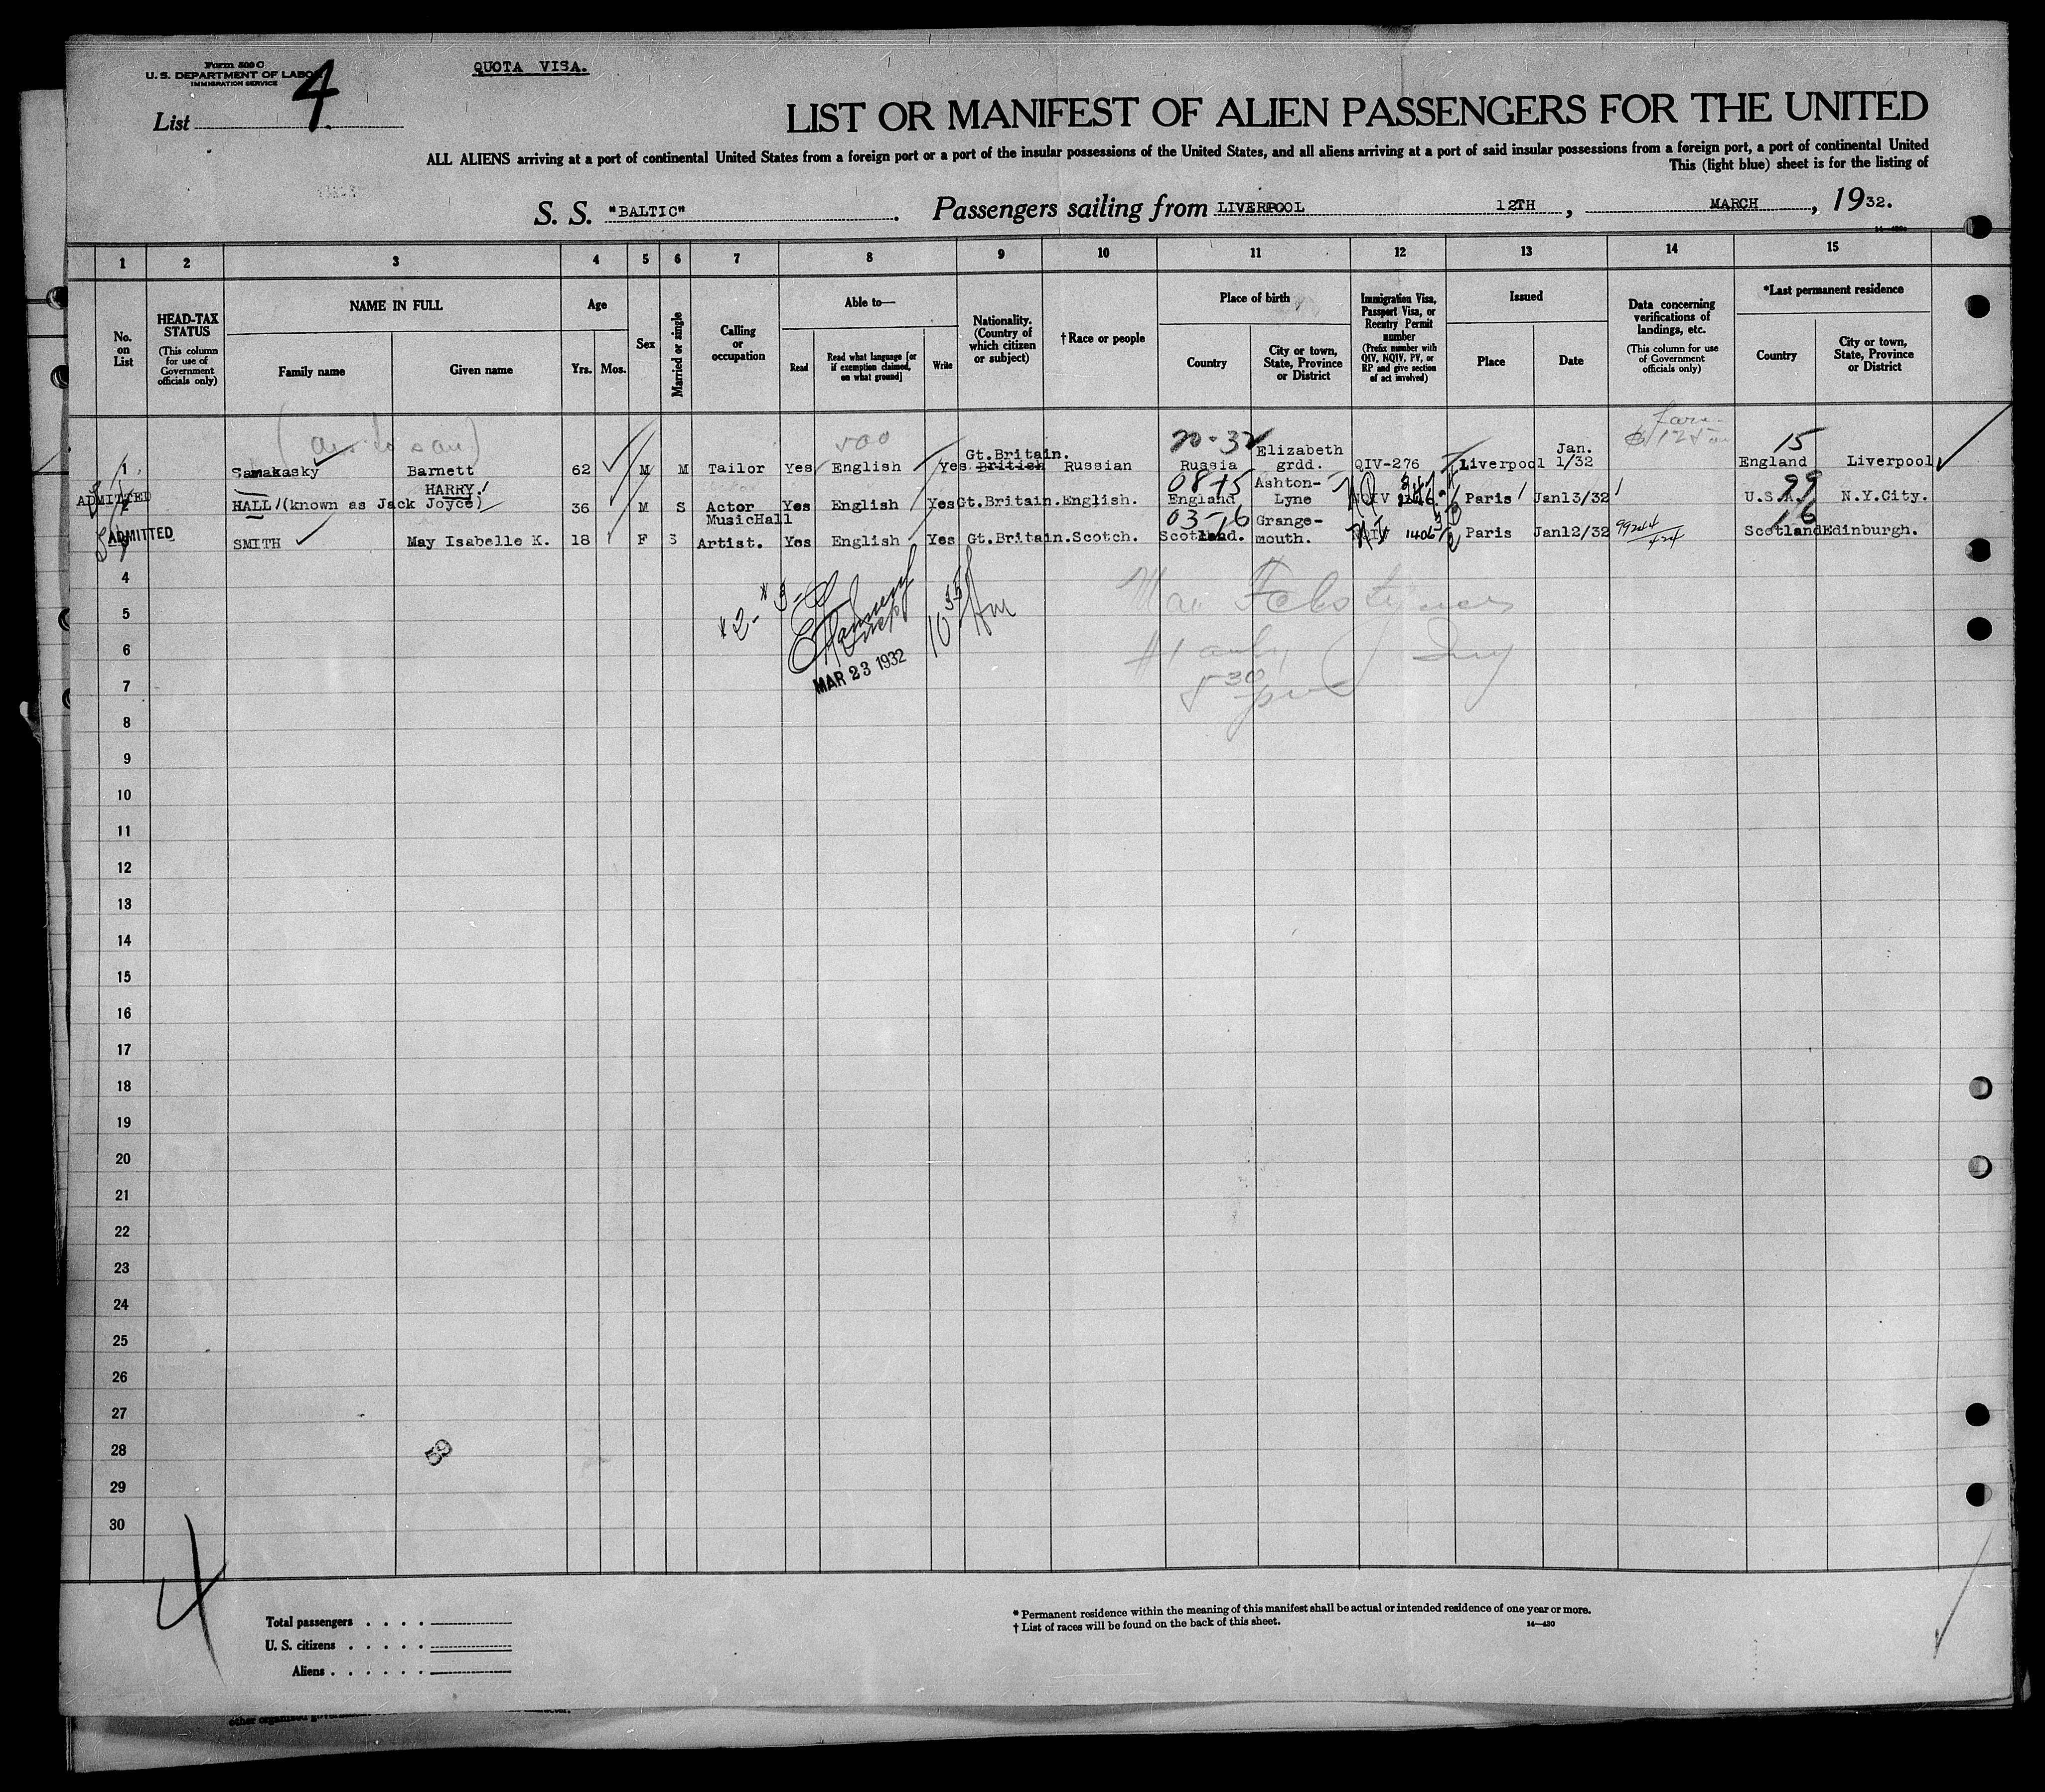 Form 500 C
U. S. DEPARTMENT OF LABOR
IMMIGRATION SERVICE
List 4
QUOTA VISA.
LIST OR MANIFEST OF ALIEN PASSENGERS FOR THE UNITED
ALL ALIENS arriving at a port of continental United States from a foreign port or a port of the insular possessions of the United States, and all aliens arriving at a port of said insular possessions from a foreign port, a port of continental United
This (light blue) sheet is for the listing of
S. S. "BALTIC". Passengers sailing from LIVERPOOL 12TH, MARCH, 1932.
1 2 3 4 5 6 7 8 9 10 11 12 13 14 15
No. on List
HEAD-TAX STATUS
(This column for use of Government officials only)
NAME IN FULL
Family name Given name
Age
Yrs. Mos.
Sex
Married or single
Calling or occupation
Able to—
Read Read what language [or if exemption claimed, on what ground] Write
Nationality. (Country of which citizen or subject)
†Race or people
Place of birth
Country City or town, State, Province or District
Immigration Visa, Passport Visa, or Reentry Permit number
(Prefix number with QIV, NQIV, PV, or RP and give section of act involved)
Issued
Place Date
Data concerning verifications of landings, etc.
(This column for use of Government officials only)
*Last permanent residence
Country City or town, State, Province or District
1 Samakasky Barnett 62 M M Tailor Yes English Yes Gt.Britain. British Russian Russia Elizabeth grdd. QIV-276 Liverpool Jan. 1/32 15 England Liverpool
ADMITTED 2 HALL (known as Jack Joyce) HARRY. 36 M S Actor Yes English Yes Gt.Britain. English. 08-15 England Ashton-Lyne Paris Jan13/32 99 U.S.A. N.Y.City.
ADMITTED SMITH May Isabelle K. 18 F S MusicHall Artist. Yes English Yes Gt.Britain. Scotch. 03-16 Scotland. Grange-mouth. 1406 Paris Jan12/32 16 Scotland Edinburgh.
4
5
6
7
MAR 23 1932
10 35 AM
8
9
10
11
12
13
14
15
16
17
18
19
20
21
22
23
24
25
26
27
28
29
30
59
4
Total passengers . . . .
U. S. citizens . . . . .
Aliens . . . . . .
* Permanent residence within the meaning of this manifest shall be actual or intended residence of one year or more.
† List of races will be found on the back of this sheet.
14—430